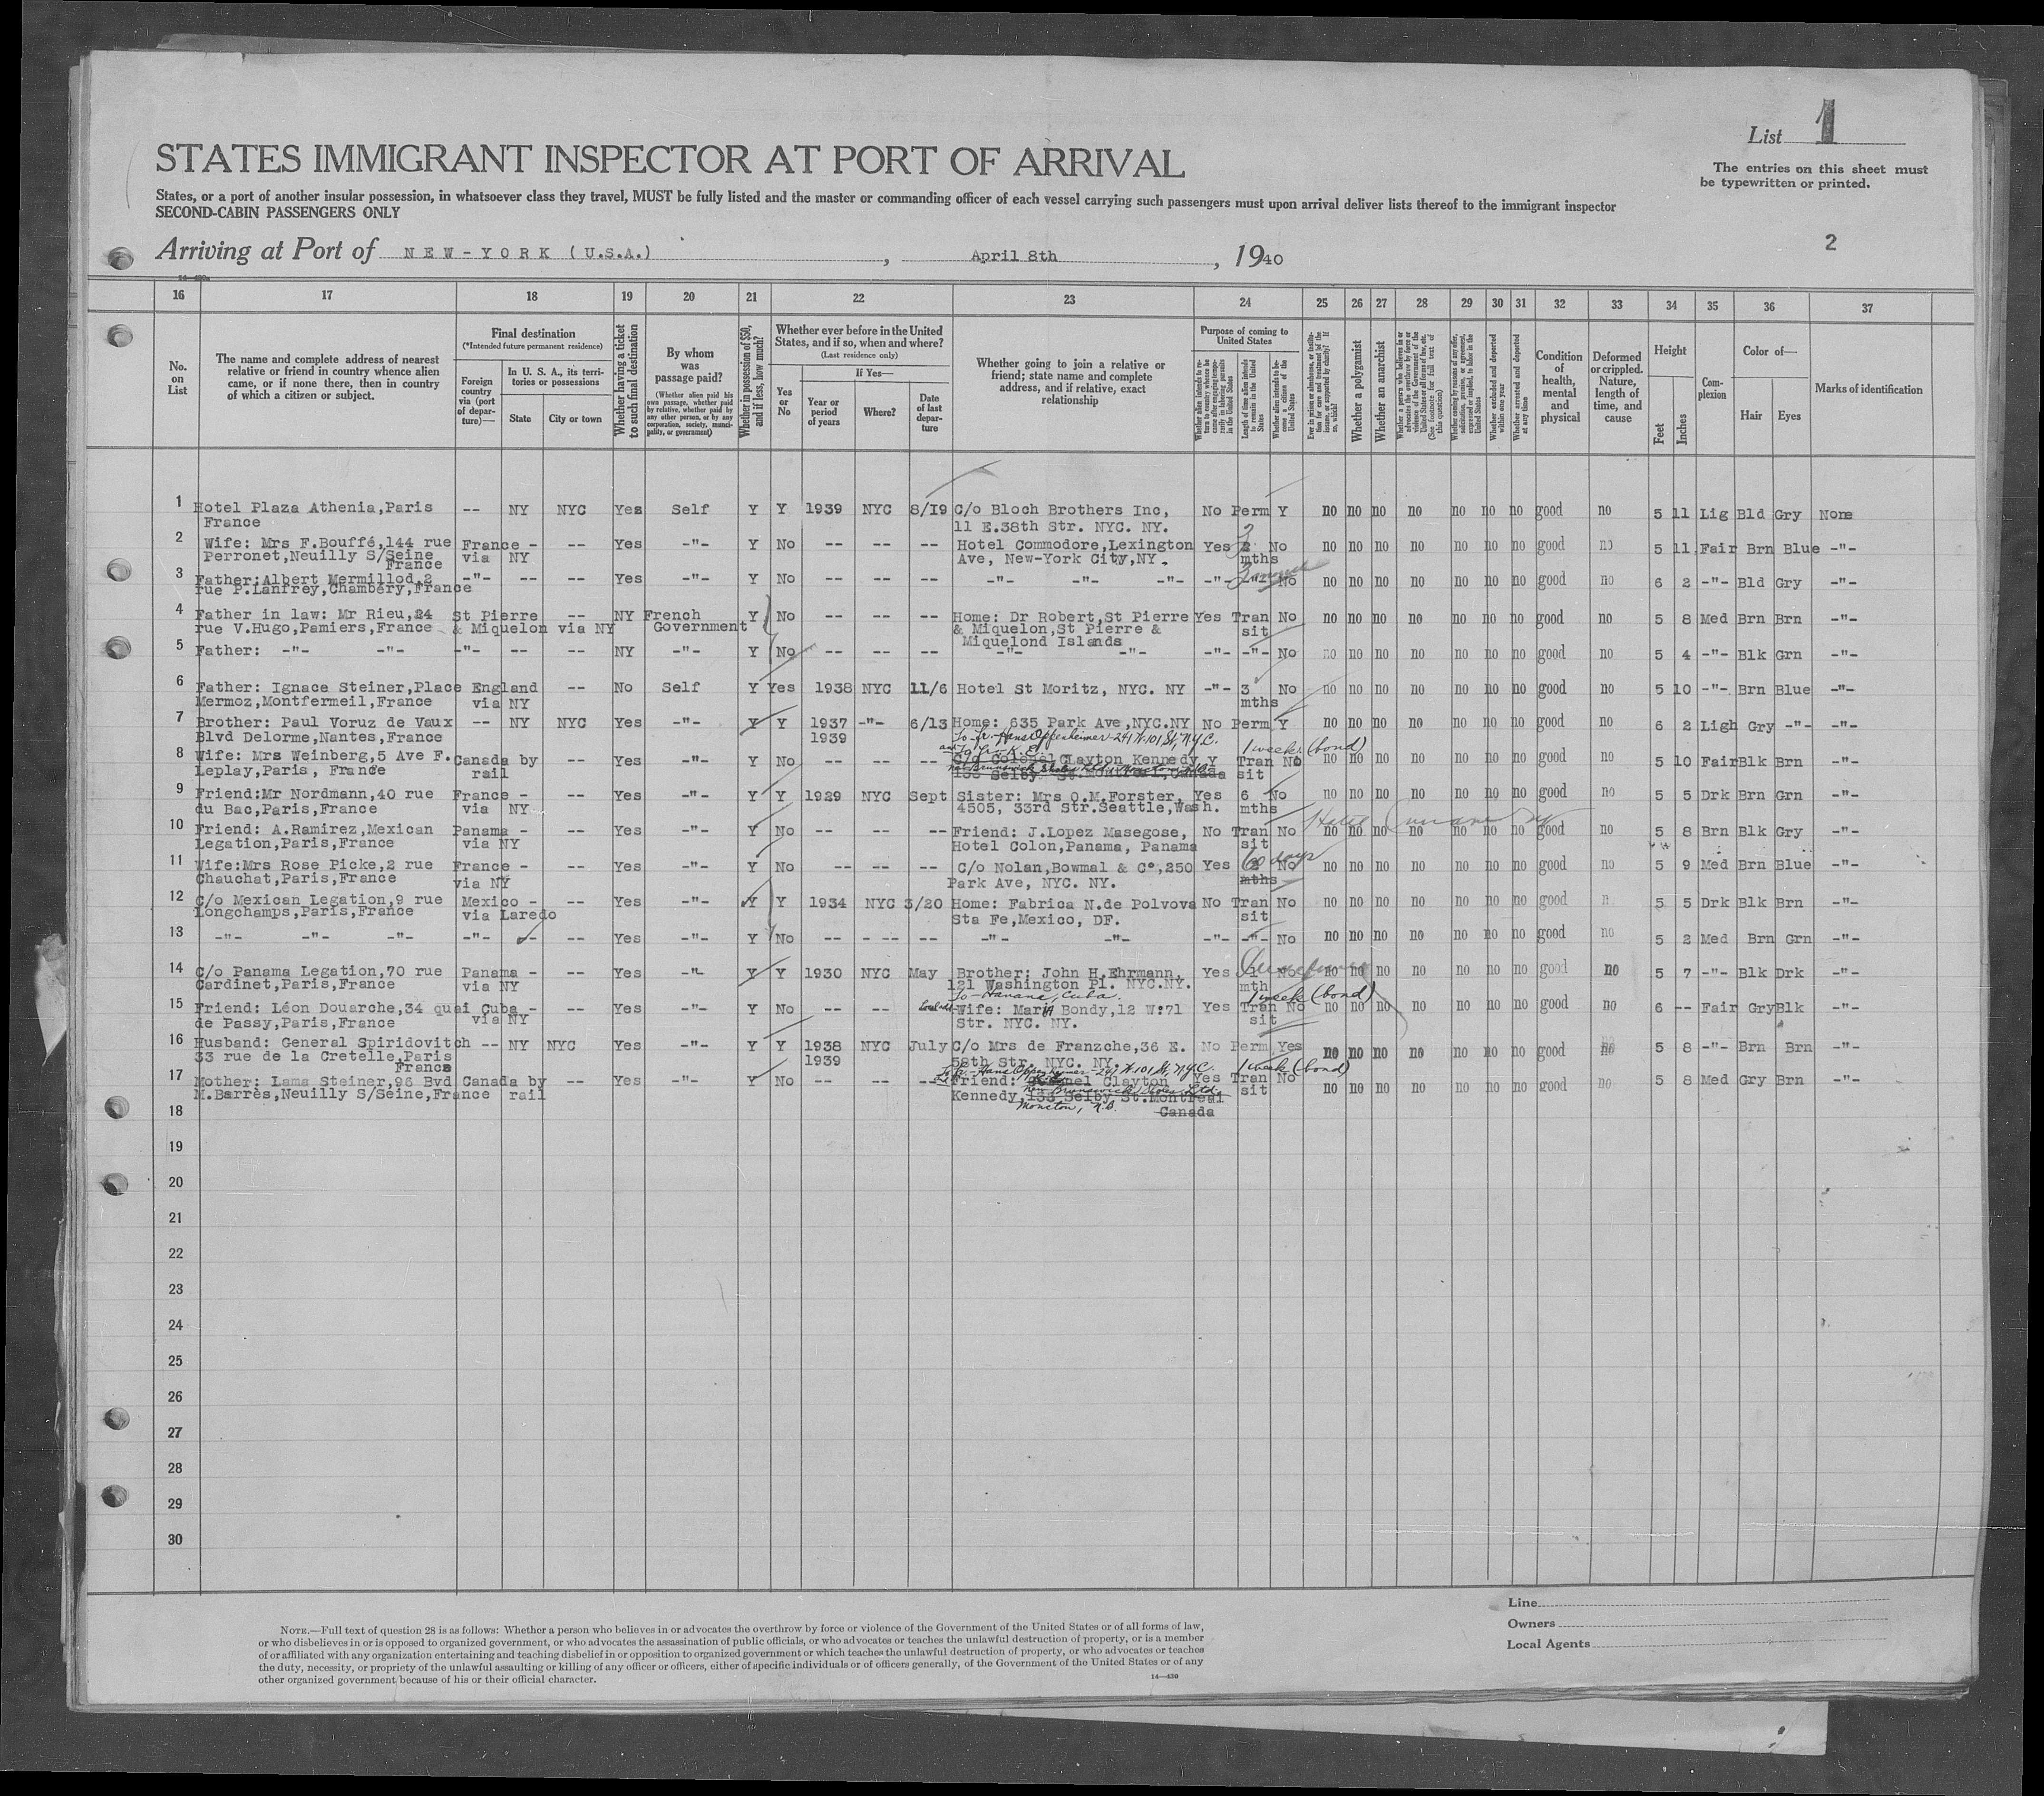 List 1
STATES IMMIGRANT INSPECTOR AT PORT OF ARRIVAL
The entries on this sheet must
be typewritten or printed.
States, or a port of another insular possession, in whatsoever class they travel, MUST be fully listed and the master or commanding officer of each vessel carrying such passengers must upon arrival deliver lists thereof to the immigrant inspector
SECOND-CABIN PASSENGERS ONLY
2
Arriving at Port of NEW-YORK (U.S.A.) , April 8th , 1940
16 17 18 19 20 21 22 23 24 25 26 27 28 29 30 31 32 33 34 35 36 37
No. on List
The name and complete address of nearest relative or friend in country whence alien came, or if none there, then in country of which a citizen or subject.
Final destination
(*Intended future permanent residence)
Foreign country via (port of departure)—
In U. S. A., its territories or possessions
State City or town
Whether having a ticket to such final destination
By whom was passage paid?
(Whether alien paid his own passage, whether paid by relative, whether paid by any other person, or by any corporation, society, municipality, or government)
Whether in possession of $50, and if less, how much?
Whether ever before in the United States, and if so, when and where?
(Last residence only)
Yes or No
If Yes—
Year or period of years Where? Date of last departure
Whether going to join a relative or friend; state name and complete address, and if relative, exact relationship
Purpose of coming to United States
Length of time alien intends to remain in the United States
Whether alien intends to become a citizen of the United States
Whether a polygamist
Whether an anarchist
Whether excluded and deported within one year
Whether arrested and deported at any time
Condition of health, mental and physical
Deformed or crippled. Nature, length of time, and cause
Height
Feet Inches
Complexion
Color of—
Hair Eyes
Marks of identification
1 Hotel Plaza Athenia,Paris -- NY NYC Yes Self Y Y 1939 NYC 8/19 C/o Bloch Brothers Inc, No Perm Y no no no no no no no good no 5 11 Lig Bld Gry None
France 11 E.38th Str. NYC. NY.
2 Wife: Mrs F.Bouffé,144 rue France - -- Yes -"- Y No -- -- -- Hotel Commodore,Lexington Yes 2 No no no no no no no no good no 5 11 Fair Brn Blue -"-
Perronet,Neuilly S/Seine via NY Ave, New-York City,NY. mths
France
3 Father:Albert Mermillod,2 -"- -- -- Yes -"- Y No -- -- -- -"- -"- -"- -"- No no no no no no no no good no 6 2 -"- Bld Gry -"-
rue P.Lanfrey,Chambéry,France
4 Father in law: Mr Rieu,24 St Pierre -- NY French Y No -- -- -- Home: Dr Robert,St Pierre Yes Tran No no no no no no no no good no 5 8 Med Brn Brn -"-
rue V.Hugo,Pamiers,France & Miquelon via NY Government & Miquelon,St Pierre & sit
Miquelond Islands
5 Father: -"- -"- -"- -- -- NY -"- Y No -- -- -- -"- -"- -"- -"- No no no no no no no no good no 5 4 -"- Blk Grn -"-
6 Father: Ignace Steiner,Place England -- No Self Y Yes 1938 NYC 11/6 Hotel St Moritz, NYC. NY -"- 3 No no no no no no no no good no 5 10 -"- Brn Blue -"-
Mermoz,Montfermeil,France via NY mths
7 Brother: Paul Voruz de Vaux -- NY NYC Yes -"- Y Y 1937 -"- 6/13 Home: 635 Park Ave,NYC.NY No Perm Y no no no no no no no good no 6 2 Ligh Gry -"- -"-
Blvd Delorme,Nantes,France 1939
To Fr- Hans Oppenheimer-241 W.101 St, N.Y.C. 1 week (bond)
8 Wife: Mrs Weinberg,5 Ave F. Canada by -- Yes -"- Y No -- -- -- C/o Colonel Clayton Kennedy Y Tran No no no no no no no no good no 5 10 Fair Blk Brn -"-
Leplay,Paris, France rail 133 Selby St.Montreal,Canada sit
9 Friend:Mr Nordmann,40 rue France - -- Yes -"- Y Y 1929 NYC Sept Sister: Mrs O.M.Forster, Yes 6 No no no no no no no no good no 5 5 Drk Brn Grn -"-
du Bac,Paris,France via NY 4505, 33rd Str.Seattle,Wash. mths
10 Friend: A.Ramirez,Mexican Panama - -- Yes -"- Y No -- -- -- Friend: J.Lopez Masegose, No Tran No no no no no no no no good no 5 8 Brn Blk Gry -"-
Legation,Paris,France via NY Hotel Colon,Panama, Panama sit
60 days
11 Wife:Mrs Rose Picke,2 rue France - -- Yes -"- Y No -- -- -- C/o Nolan,Bowmal & C°,250 Yes 2 No no no no no no no no good no 5 9 Med Brn Blue -"-
Chauchat,Paris,France via NY Park Ave, NYC. NY. mths
12 C/o Mexican Legation,9 rue Mexico - -- Yes -"- Y Y 1934 NYC 3/20 Home: Fabrica N.de Polvova No Tran No no no no no no no no good n 5 5 Drk Blk Brn -"-
Longchamps,Paris,France via Laredo Sta Fe,Mexico, DF. sit
13 -"- -"- -"- -"- -- -- Yes -"- Y No -- - -- -- -"- -"- -"- -"- No no no no no no no no good no 5 2 Med Brn Grn -"-
14 C/o Panama Legation,70 rue Panama - -- Yes -"- Y Y 1930 NYC May Brother: John H.Ehrmann, Yes 1 No no no no no no no no good no 5 7 -"- Blk Drk -"-
Cardinet,Paris,France via NY 121 Washington Pl. NYC.NY. mth
To- Havana, Cuba. 1 week (bond)
15 Friend: Léon Douarche,34 quai Cuba - -- Yes -"- Y No -- -- Wife: Mary Bondy,12 W:71 Yes Tran No no no no no no no no good no 6 -- Fair Gry Blk -"-
de Passy,Paris,France via NY Str. NYC. NY. sit
16 Husband: General Spiridovitch -- NY NYC Yes -"- Y Y 1938 NYC July C/o Mrs de Franzche,36 E. No Perm Yes no no no no no no no good no 5 8 -"- Brn Brn -"-
33 rue de la Cretelle,Paris 1939 58th Str. NYC. NY.
France To Fr.- Hans Oppenheimer-241 W.101 St, N.Y.C. 1 week (bond)
17 Mother: Lama Steiner,96 Bvd Canada by -- Yes -"- Y No -- -- -- Friend: Colonel Clayton Yes Tran No no no no no no no no good no 5 8 Med Gry Brn -"-
M.Barrès,Neuilly S/Seine,France rail Kennedy,133 Selby St.Montreal sit
Moncton, N.B. Canada
18
19
20
21
22
23
24
25
26
27
28
29
30
Line
Owners
Local Agents
NOTE.—Full text of question 28 is as follows: Whether a person who believes in or advocates the overthrow by force or violence of the Government of the United States or of all forms of law,
or who disbelieves in or is opposed to organized government, or who advocates the assassination of public officials, or who advocates or teaches the unlawful destruction of property, or is a member
of or affiliated with any organization entertaining and teaching disbelief in or opposition to organized government or which teaches the unlawful destruction of property, or who advocates or teaches
the duty, necessity, or propriety of the unlawful assaulting or killing of any officer or officers, either of specific individuals or of officers generally, of the Government of the United States or of any
other organized government because of his or their official character.
14—430